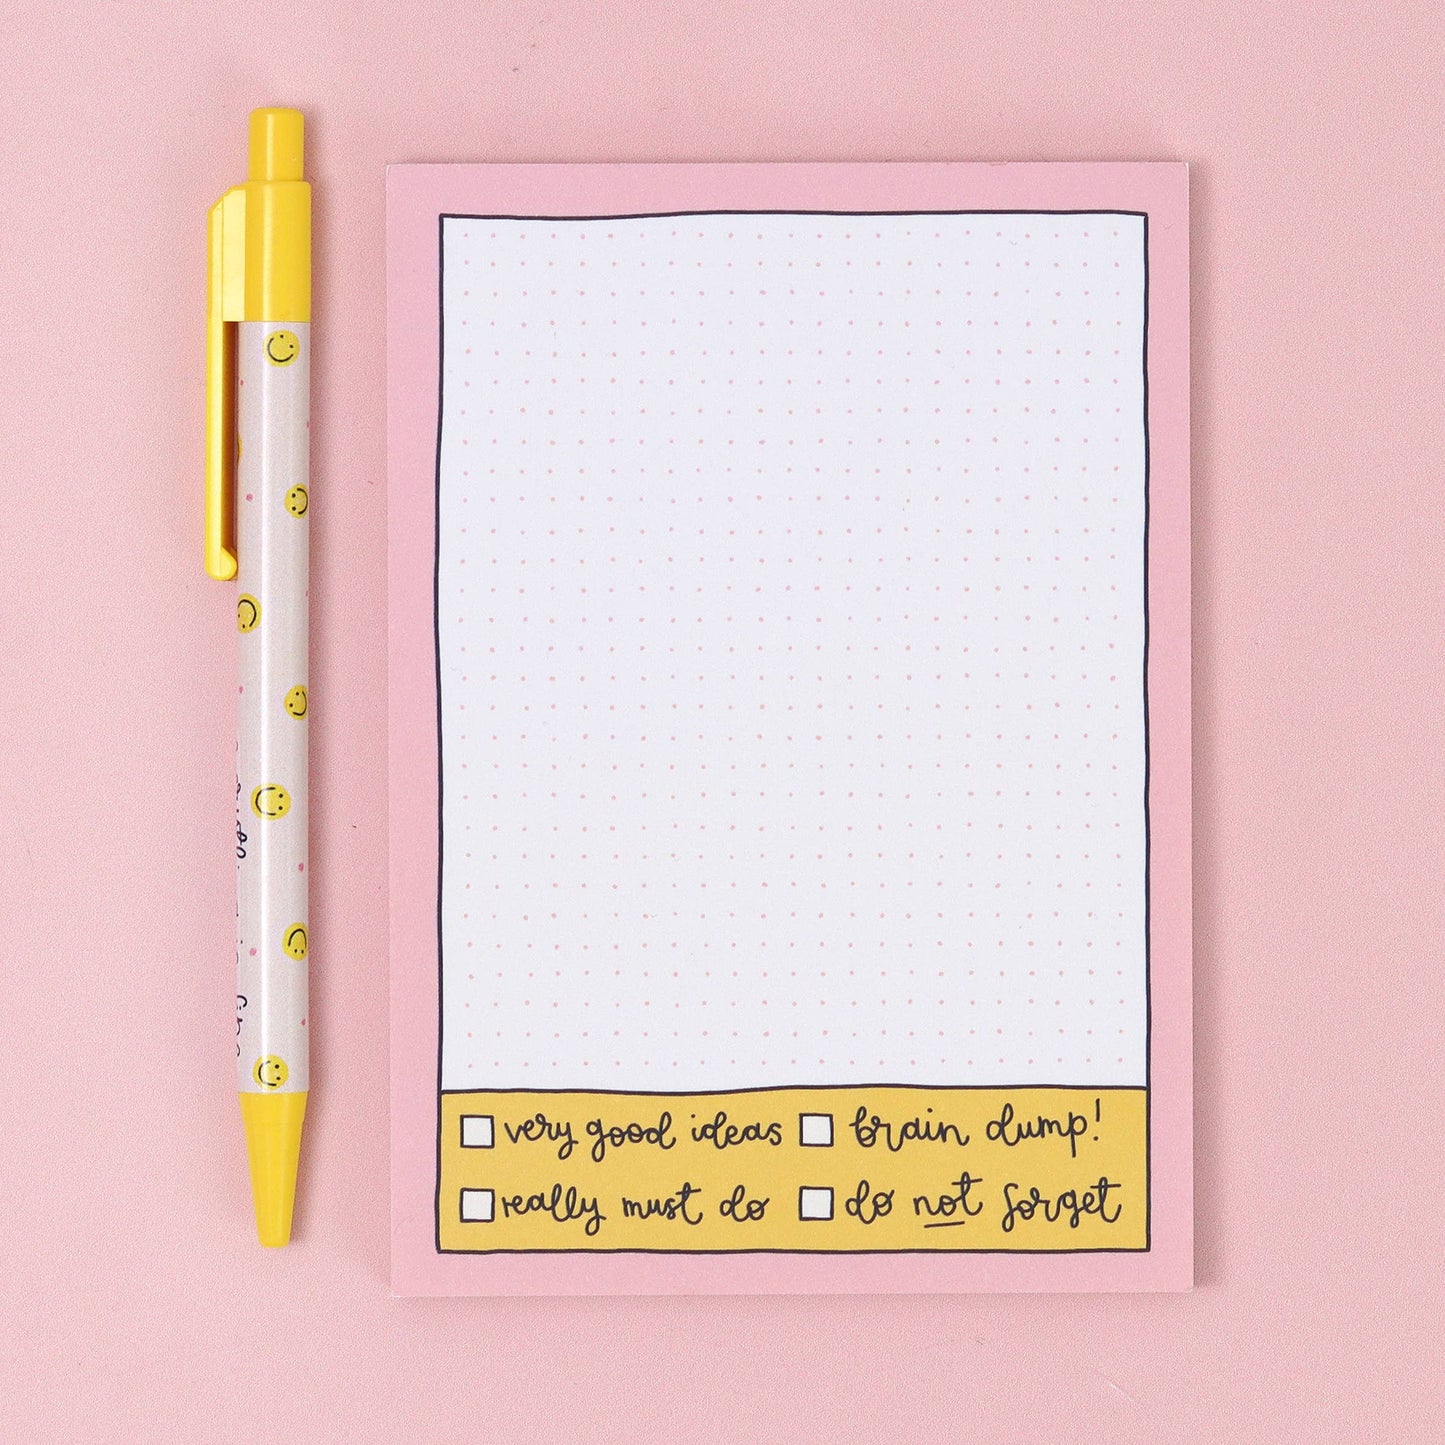 very good ideas brain dump!
really must do do not forget